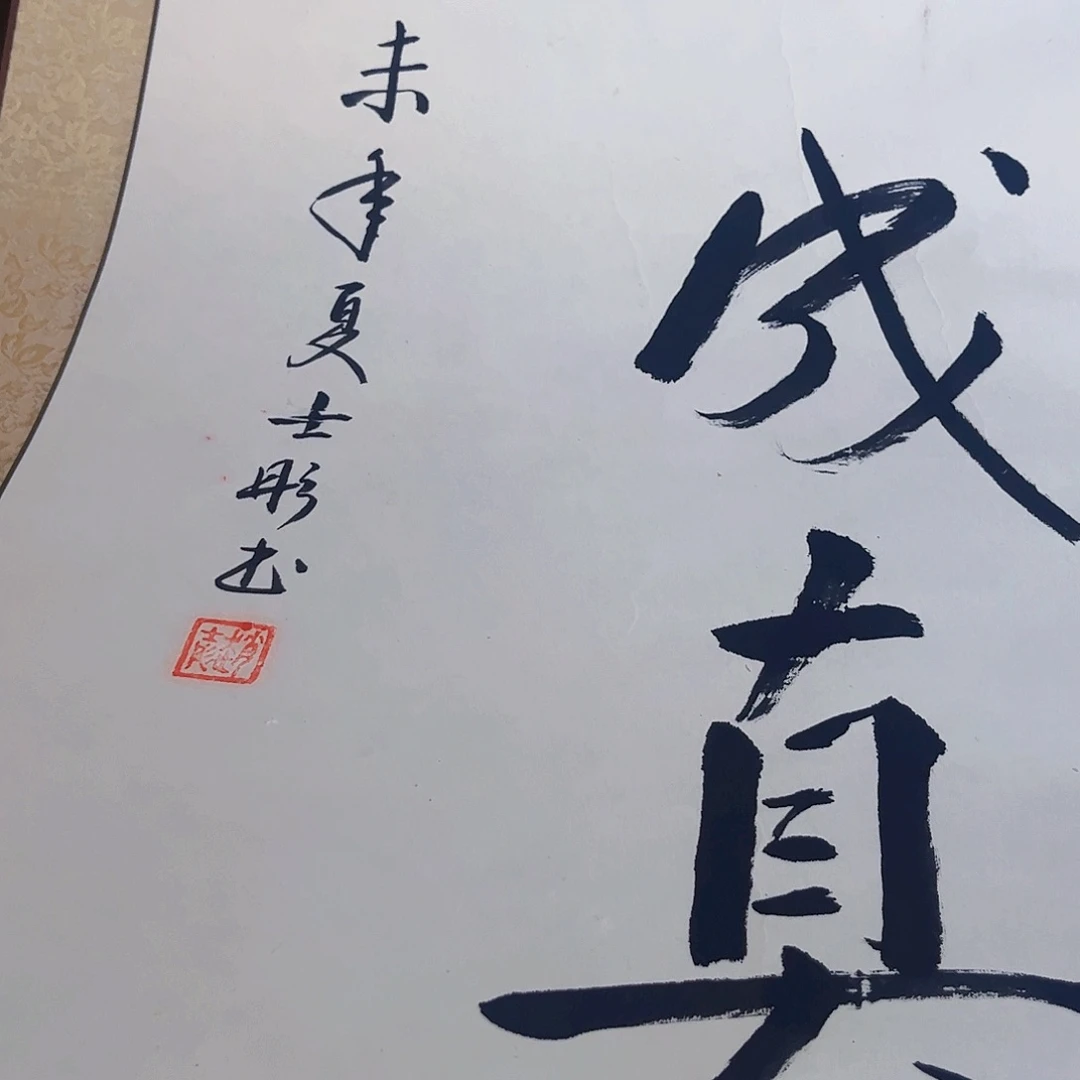 成真
未年夏士彤书